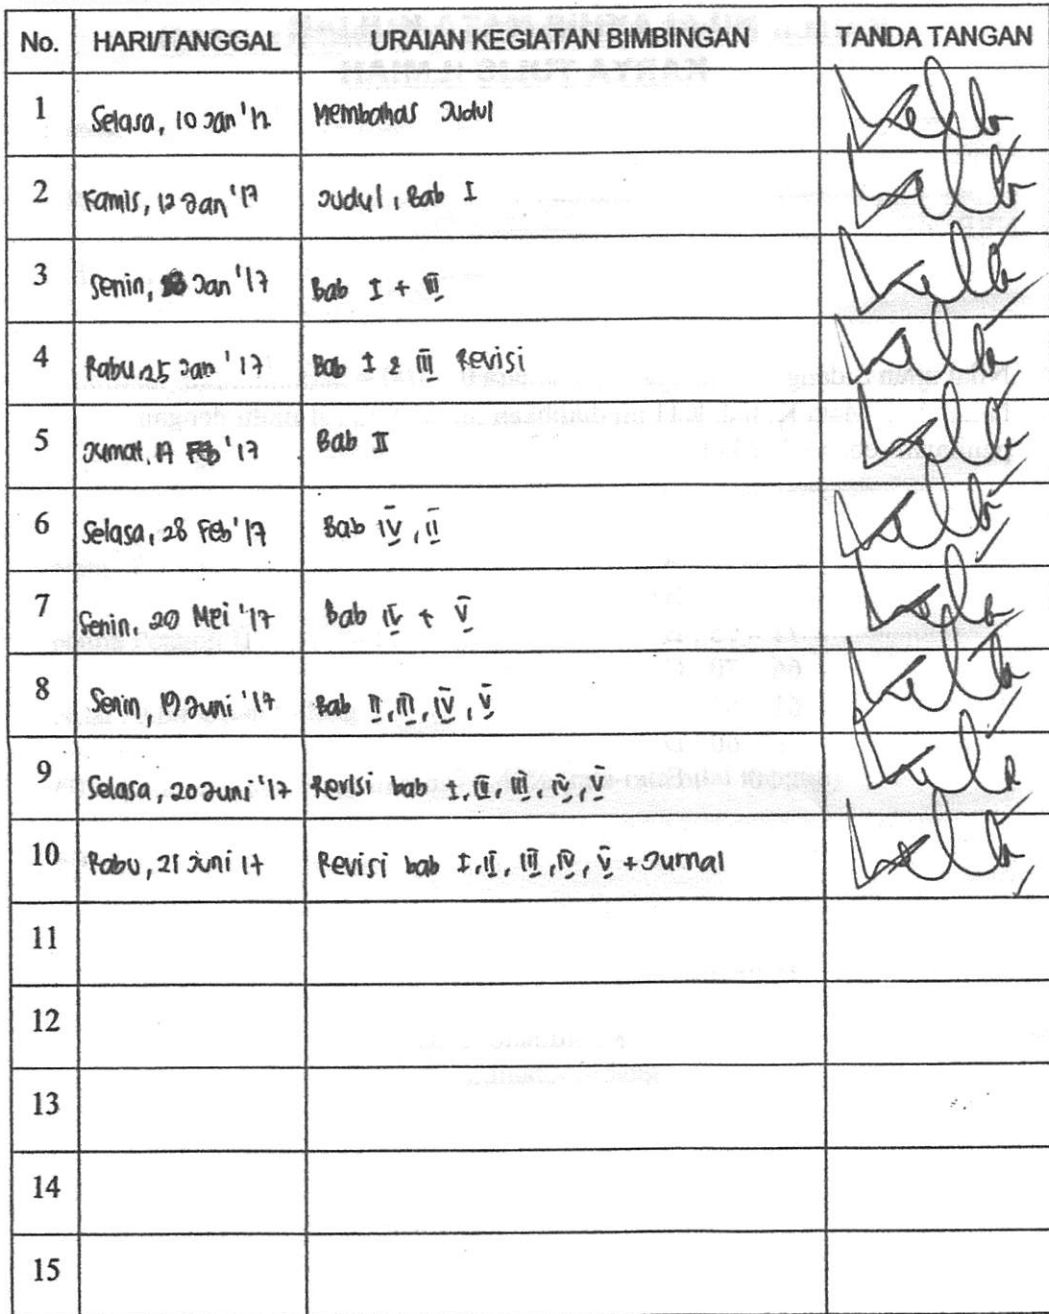 No. HARI/TANGGAL URAIAN KEGIATAN BIMBINGAN TANDA TANGAN
1 Selasa, 10 Jan '17 Membahas Judul
2 Kamis, 12 Jan '17 Judul, Bab I
3 Senin, Jan '17 Bab I + III
4 Rabu, 25 Jan '17 Bab I & III Revisi
5 Jumat, 17 Feb '17 Bab II
6 Selasa, 28 Feb '17 Bab IV, II
7 Senin, 20 Mei '17 Bab IV + V
8 Senin, 19 Juni '17 Bab II, III, IV, V
9 Selasa, 20 Juni '17 Revisi bab I, II, III, IV, V
10 Rabu, 21 Juni 17 Revisi bab I, II, III, IV, V + Jurnal
11
12
13
14
15